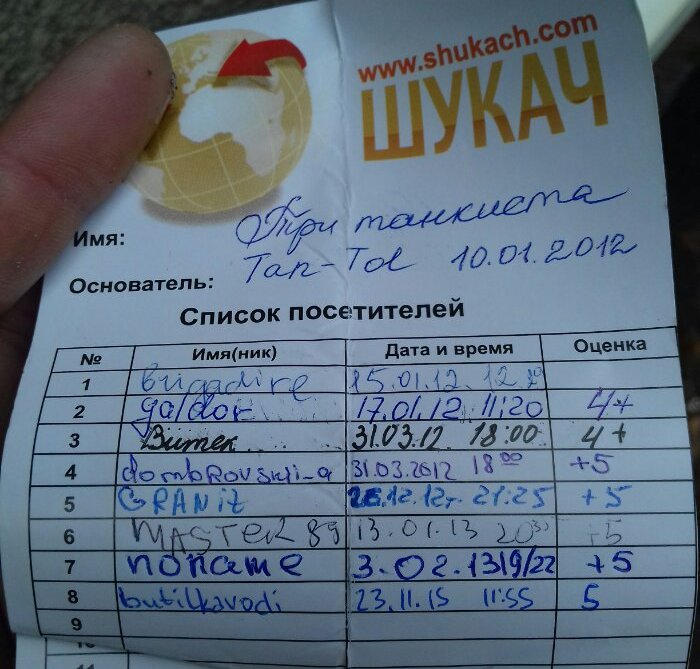 www.shukach.com
ШУКАЧ
Имя: Три танкиста
Основатель: Tan-Tol 10.01.2012
Список посетителей
№ Имя(ник) Дата и время Оценка
1 brigadire 15.01.12.
2 galdor 17.01.12 11:20 4+
3 Витек 31.03.12. 18:00 4+
4 dombrovskii-a 31.03.2012 18 00 +5
5 GRANiz 26.12.12г. 21:25 +5
6 MASTER 89 13.01.13 +5
7 noname 3.02.13 19/22 +5
8 butilkavodi 23.11.15 11:55 5
9
10
11